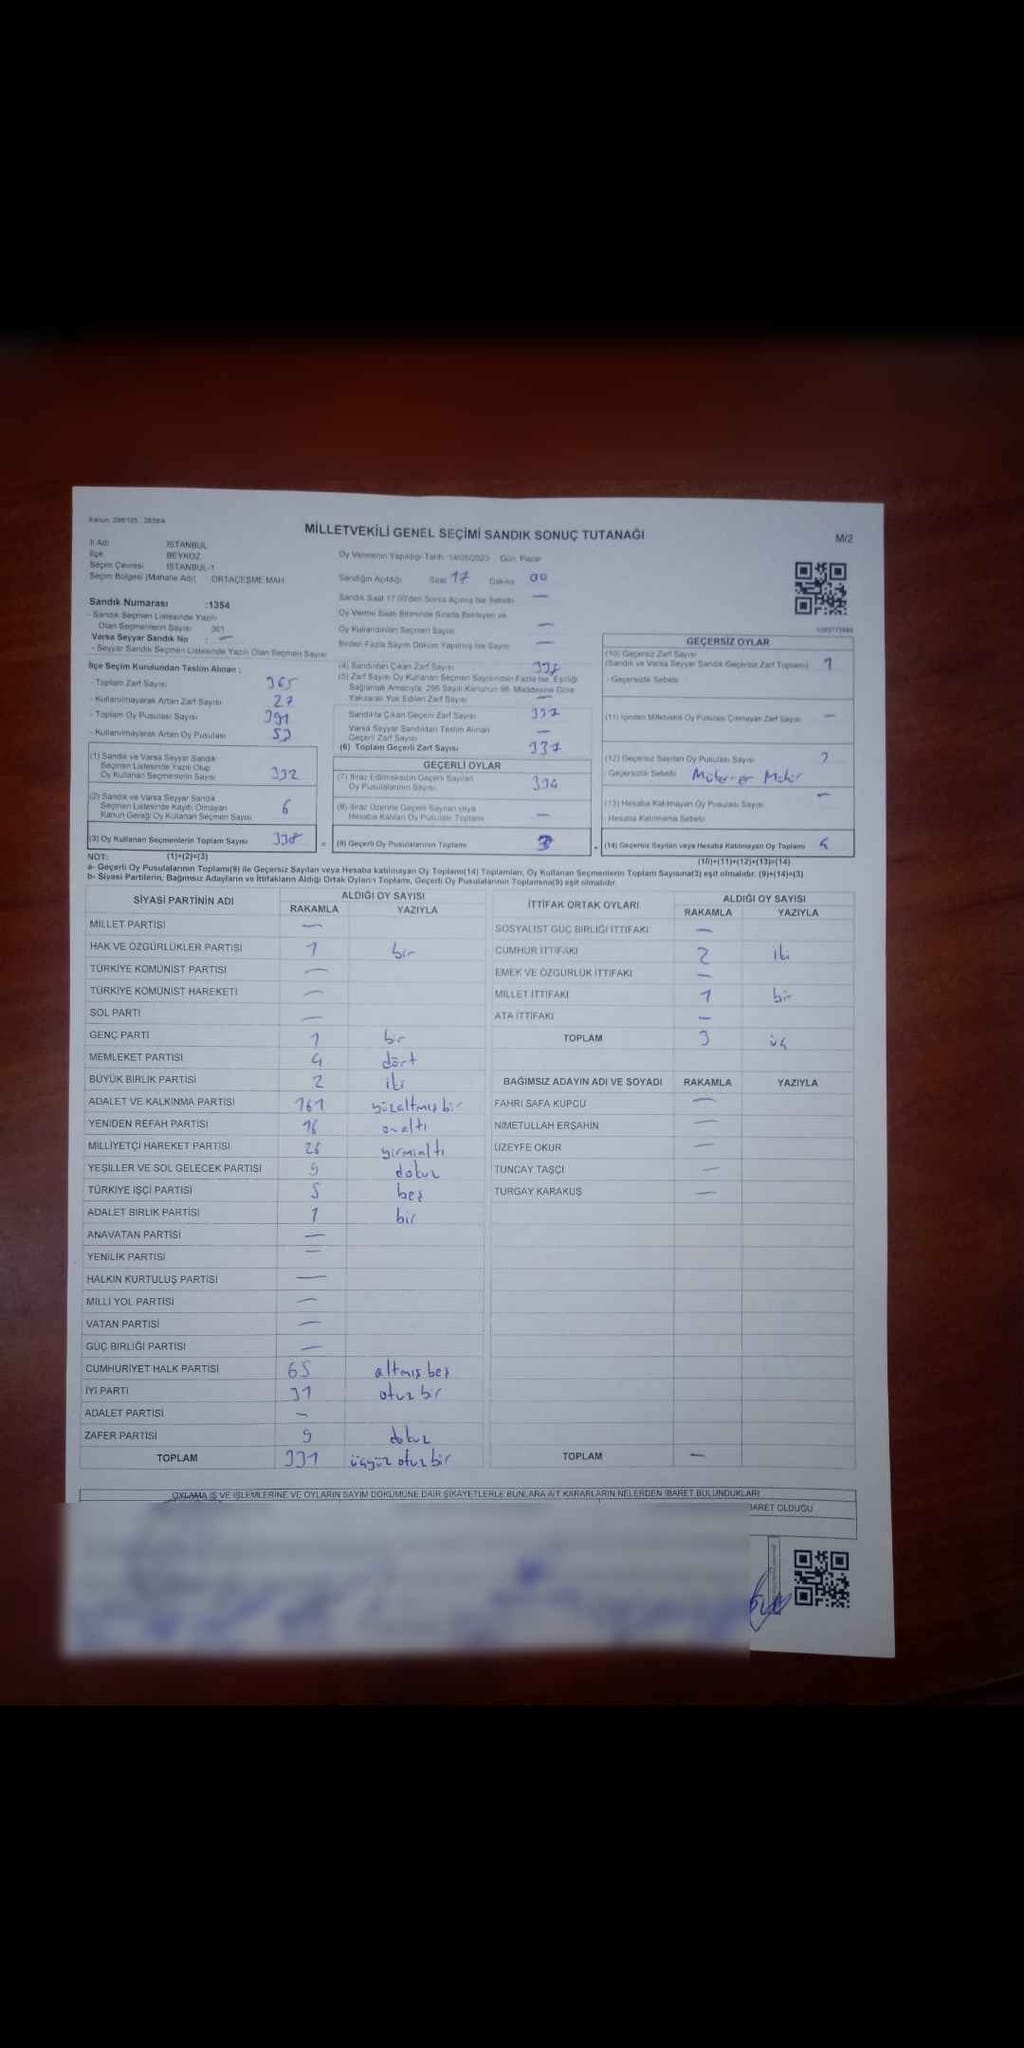 MİLLETVEKİLİ GENEL SEÇİMİ SANDIK SONUÇ TUTANAĞI
M/2
İl Adı İSTANBUL
İlçe BEYKOZ
Seçim Çevresi İSTANBUL-1
Seçim Bölgesi (Mahalle Adı) ORTAÇEŞME MAH
Oy Vermenin Yapıldığı Tarih 14/05/2023 Gün Pazar
Sandığın Açıldığı Saat 17 Dakika 00
Sandık Saat 17:00'den Sonra Açılmış İse Sebebi —
Oy Verme Saati Bitiminde Sırada Bekleyen ve
Oy Kullandırılan Seçmen Sayısı —
Birden Fazla Sayım Döküm Yapılmış İse Sayısı —
Sandık Numarası :1354
- Sandık Seçmen Listesinde Yazılı
Olan Seçmenlerin Sayısı 361
Varsa Seyyar Sandık No : —
- Seyyar Sandık Seçmen Listesinde Yazılı Olan Seçmen Sayısı
İlçe Seçim Kurulundan Teslim Alınan :
- Toplam Zarf Sayısı 365
- Kullanılmayarak Artan Zarf Sayısı 27
- Toplam Oy Pusulası Sayısı 391
- Kullanılmayarak Artan Oy Pusulası 53
(1) Sandık ve Varsa Seyyar Sandık
Seçmen Listesinde Yazılı Olup
Oy Kullanan Seçmenlerin Sayısı 332
(2) Sandık ve Varsa Seyyar Sandık
Seçmen Listesinde Kayıtlı Olmayan
Kanun Gereği Oy Kullanan Seçmen Sayısı 6
(3) Oy Kullanan Seçmenlerin Toplam Sayısı 338 =
(4) Sandıktan Çıkan Zarf Sayısı 338
(5) Zarf Sayısı Oy Kullanan Seçmen Sayısından Fazla İse, Eşitliği
Sağlamak Amacıyla; 298 Sayılı Kanunun 98. Maddesine Göre
Yakılarak Yok Edilen Zarf Sayısı —
Sandıkta Çıkan Geçerli Zarf Sayısı 337
Varsa Seyyar Sandıktan Teslim Alınan
Geçerli Zarf Sayısı —
(6) Toplam Geçerli Zarf Sayısı 337
GEÇERLİ OYLAR
(7) İtiraz Edilmeksizin Geçerli Sayılan
Oy Pusulalarının Sayısı 334
(8) İtiraz Üzerine Geçerli Sayılan veya
Hesaba Katılan Oy Pusulası Toplamı —
(9) Geçerli Oy Pusulalarının Toplamı +
GEÇERSİZ OYLAR
(10) Geçersiz Zarf Sayısı
(Sandık ve Varsa Seyyar Sandık Geçersiz Zarf Toplamı) 1
- Geçersizlik Sebebi
(11) İçinden Milletvekili Oy Pusulası Çıkmayan Zarf Sayısı —
(12) Geçersiz Sayılan Oy Pusulası Sayısı
Geçersizlik Sebebi
(13) Hesaba Katılmayan Oy Pusulası Sayısı —
Hesaba Katılmama Sebebi
(14) Geçersiz Sayılan veya Hesaba Katılmayan Oy Toplamı
NOT: (1)+(2)=(3)
(10)+(11)+(12)+(13)=(14)
a- Geçerli Oy Pusulalarının Toplamı(9) ile Geçersiz Sayılan veya Hesaba katılmayan Oy Toplamı(14) Toplamları, Oy Kullanan Seçmenlerin Toplam Sayısına(3) eşit olmalıdır. (9)+(14)=(3)
b- Siyasi Partilerin, Bağımsız Adayların ve İttifakların Aldığı Ortak Oyların Toplamı, Geçerli Oy Pusulalarının Toplamına(9) eşit olmalıdır.
SİYASİ PARTİNİN ADI ALDIĞI OY SAYISI
RAKAMLA YAZIYLA
MİLLET PARTİSİ —
HAK VE ÖZGÜRLÜKLER PARTİSİ 1 bir
TÜRKİYE KOMÜNİST PARTİSİ —
TÜRKİYE KOMÜNİST HAREKETİ —
SOL PARTİ —
GENÇ PARTİ 1 bir
MEMLEKET PARTİSİ 4 dört
BÜYÜK BİRLİK PARTİSİ 2 iki
ADALET VE KALKINMA PARTİSİ 161 yüzaltmış bir
YENİDEN REFAH PARTİSİ 16 onaltı
MİLLİYETÇİ HAREKET PARTİSİ 26 yirmialtı
YEŞİLLER VE SOL GELECEK PARTİSİ 9 dokuz
TÜRKİYE İŞÇİ PARTİSİ 5 beş
ADALET BİRLİK PARTİSİ 1 bir
ANAVATAN PARTİSİ —
YENİLİK PARTİSİ —
HALKIN KURTULUŞ PARTİSİ —
MİLLİ YOL PARTİSİ —
VATAN PARTİSİ —
GÜÇ BİRLİĞİ PARTİSİ —
CUMHURİYET HALK PARTİSİ 65 altmış beş
İYİ PARTİ 31 otuz bir
ADALET PARTİSİ —
ZAFER PARTİSİ 9 dokuz
TOPLAM 331 üçyüz otuz bir
İTTİFAK ORTAK OYLARI ALDIĞI OY SAYISI
RAKAMLA YAZIYLA
SOSYALİST GÜÇ BİRLİĞİ İTTİFAKI —
CUMHUR İTTİFAKI 2 iki
EMEK VE ÖZGÜRLÜK İTTİFAKI —
MİLLET İTTİFAKI 1 bir
ATA İTTİFAKI —
TOPLAM 3 üç
BAĞIMSIZ ADAYIN ADI VE SOYADI RAKAMLA YAZIYLA
FAHRİ SAFA KÜPCÜ —
NİMETULLAH ERŞAHİN —
ÜZEYFE OKUR —
TUNCAY TAŞÇI —
TURGAY KARAKUŞ —
TOPLAM —
OYLAMA İŞ VE İŞLEMLERİNE VE OYLARIN SAYIM DÖKÜMÜNE DAİR ŞİKAYETLERLE BUNLARA AİT KARARLARIN NELERDEN İBARET BULUNDUKLARI
BARET OLDUĞU